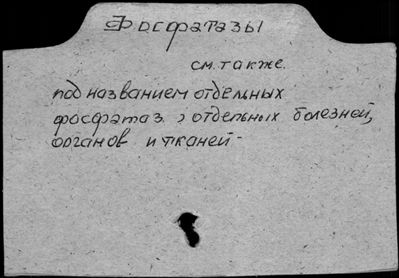 Фосфатазы
см. также.
под названием отдельных
фосфатаз, отдельных болезней,
органов и тканей -